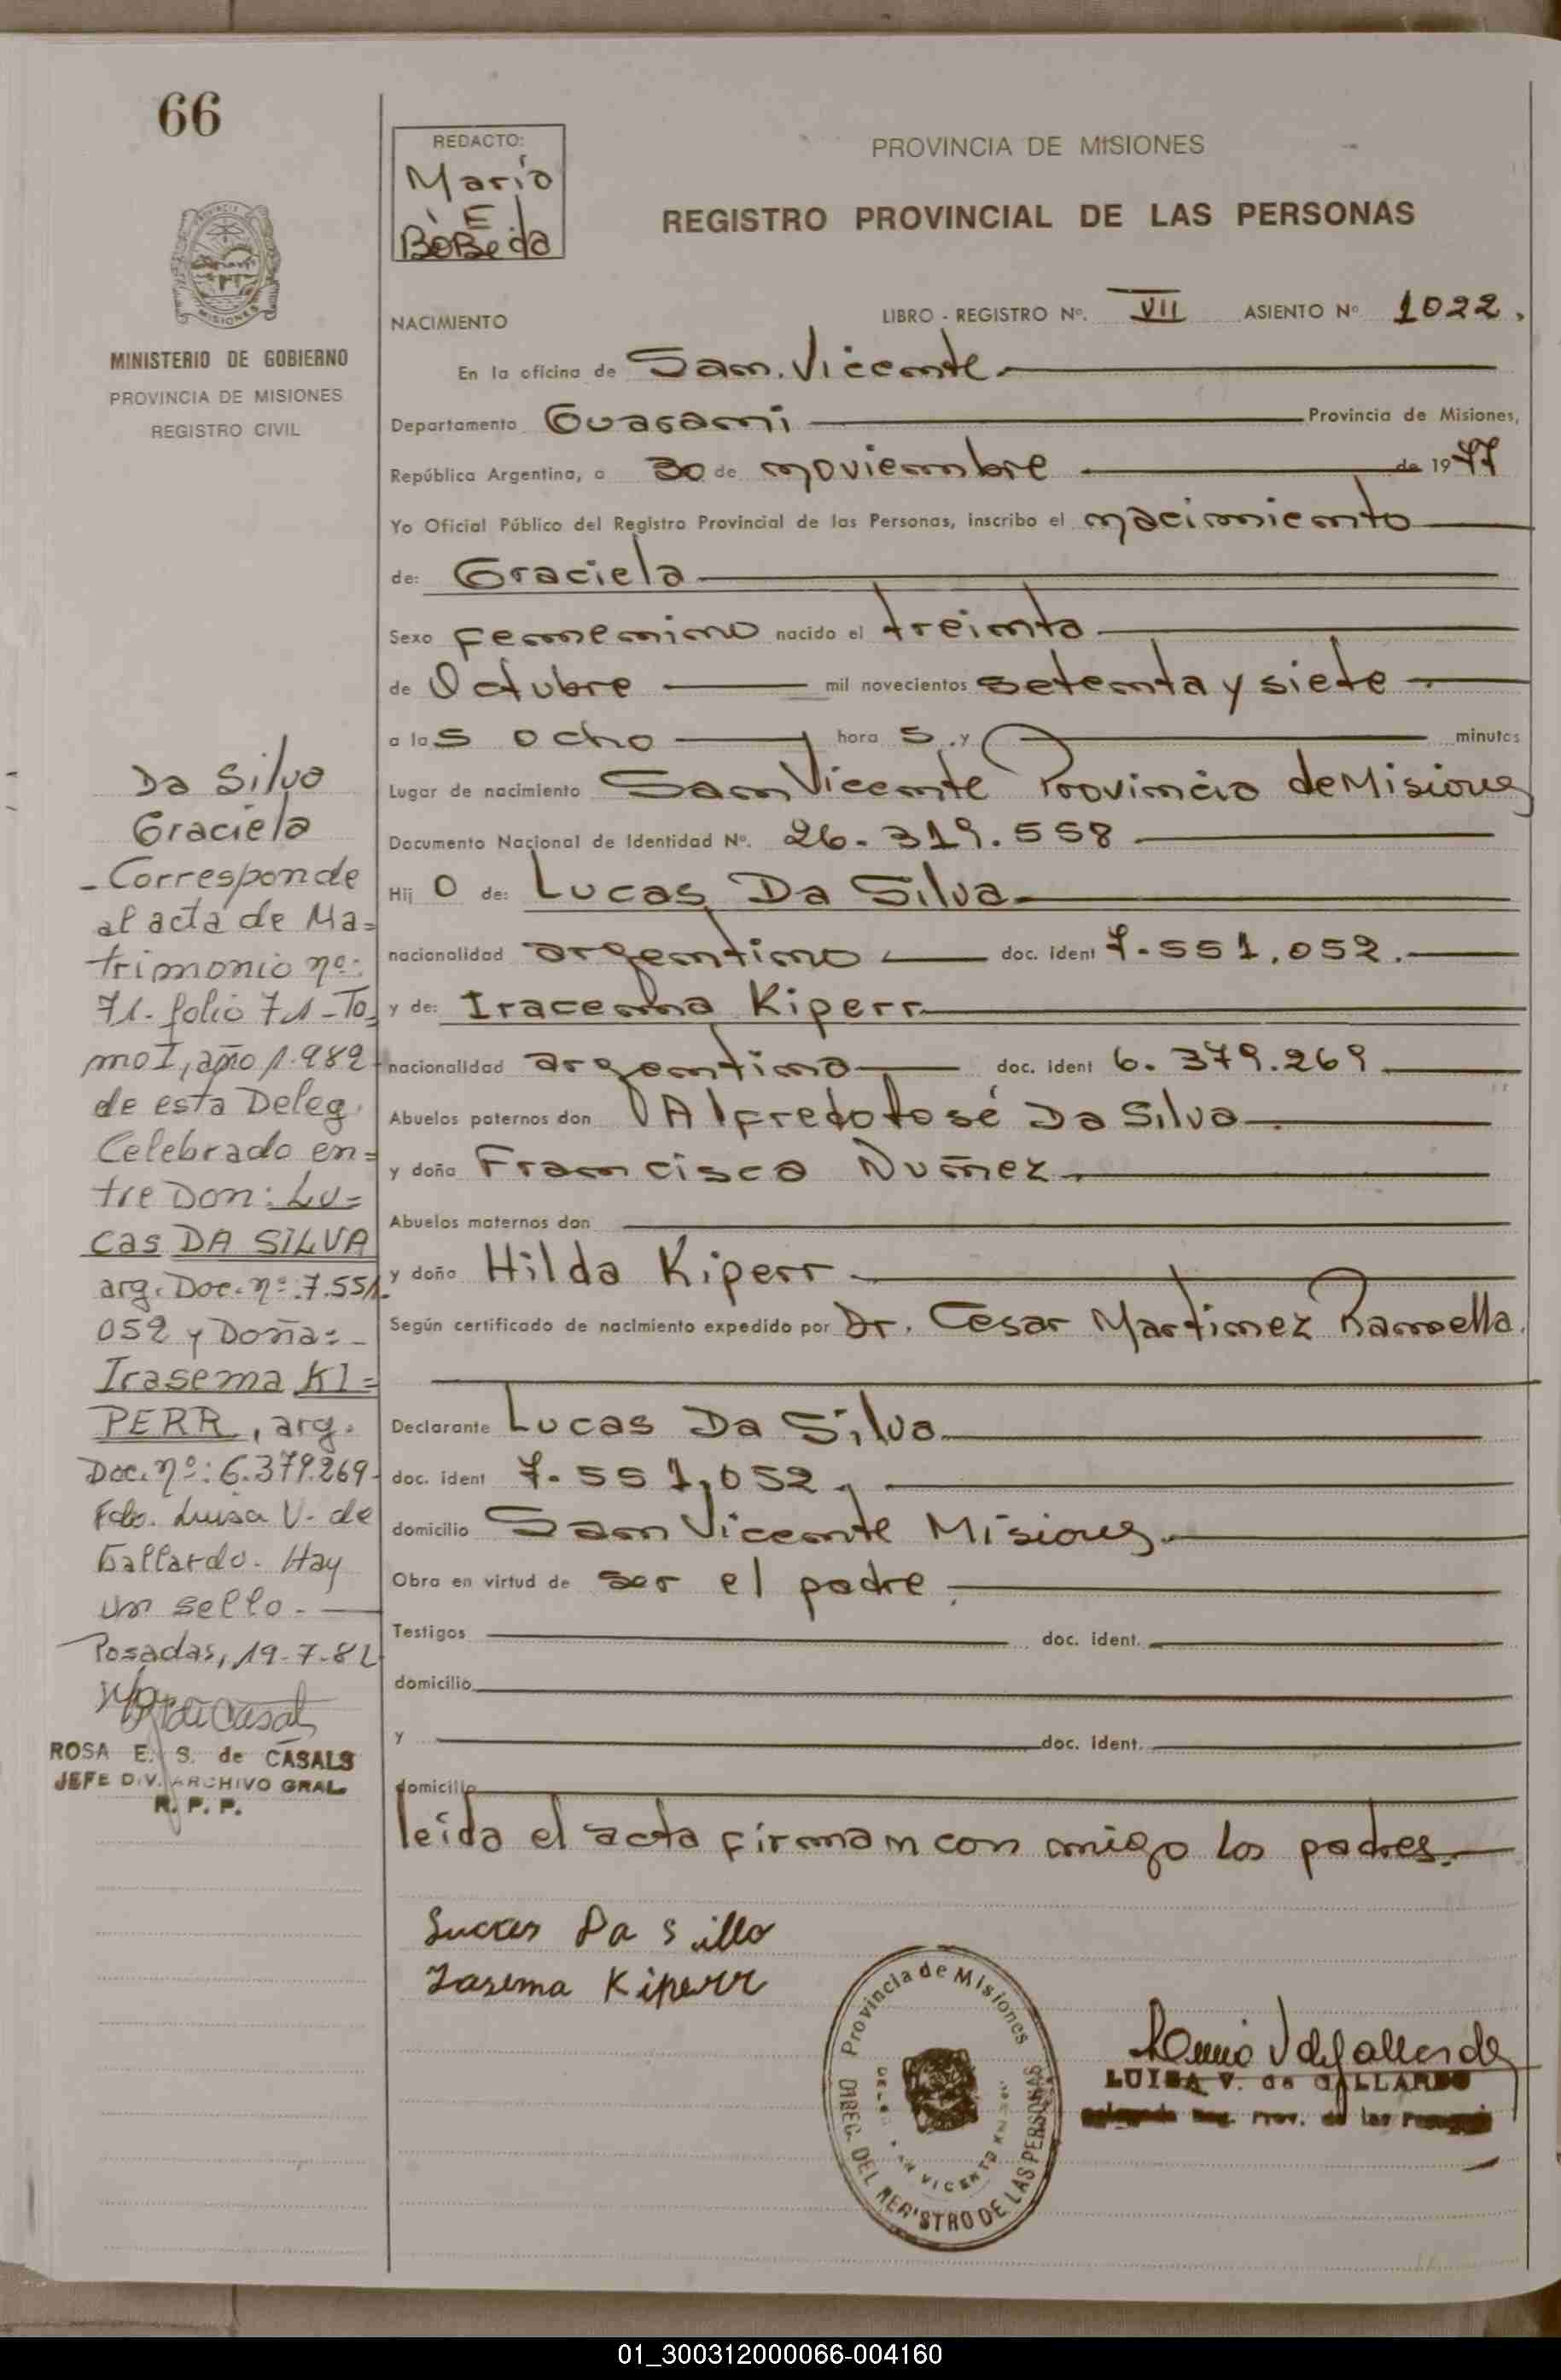 66
REDACTO:
Mario
E.
BoBeda
PROVINCIA DE MISIONES
REGISTRO PROVINCIAL DE LAS PERSONAS
MISIONES
MINISTERIO DE GOBIERNO
PROVINCIA DE MISIONES
REGISTRO CIVIL
NACIMIENTO LIBRO - REGISTRO Nº. VII ASIENTO Nº 1022.
En la oficina de San Vicente
Departamento Guarani Provincia de Misiones,
República Argentina, a 30 de noviembre de 1977
Yo Oficial Público del Registro Provincial de las Personas, inscribo el nacimiento
de: Graciela
Sexo femenino nacido el treinta
de Octubre mil novecientos setenta y siete
a las ocho horas y minutos
Lugar de nacimiento San Vicente Provincia de Misiones
Documento Nacional de Identidad Nº. 26.319.558
Hij o de: Lucas Da Silva
nacionalidad argentino doc. ident 7.551.052.
y de: Iracema Kiperr
nacionalidad argentina doc. ident 6.379.269
Abuelos paternos don Alfredo José Da Silva
y doña Francisca Nuñez
Abuelos maternos don
y doña Hilda Kiperr
Según certificado de nacimiento expedido por Dr. Cesar Martinez
Declarante Lucas Da Silva
doc. ident 7.551,052
domicilio San Vicente Misiones
Obra en virtud de ser el padre
Testigos doc. ident.
domicilio
y doc. ident.
domicilio
leida el acta firman con migo los padres.
Da Silva
Graciela
- Corresponde
al acta de Ma=
trimonio nº:
71. folio 71 - To=
mo I, año 1.982
de esta Deleg.
Celebrado en=
tre Don: Lu=
cas DA SILVA
arg. Doc. nº: 7.551.
052 y Doña: -
Irasema KI=
PERR, arg.
Doc. nº: 6.379.269-
Fdo. Luisa V. de
Gallardo. Hay
un sello.
Posadas, 19-7-82
ROSA E. S. de CASALS
JEFE DIV. ARCHIVO GRAL.
R. P. P.
Lucas Da Sillo
Irasema Kiperr
Provincia de Misiones
DIREC. DEL REGISTRO DE LAS PERSONAS
SAN VICENTE
LUISA V. de GALLARDO
Delegada Reg. Prov. de las Personas
01_300312000066-004160